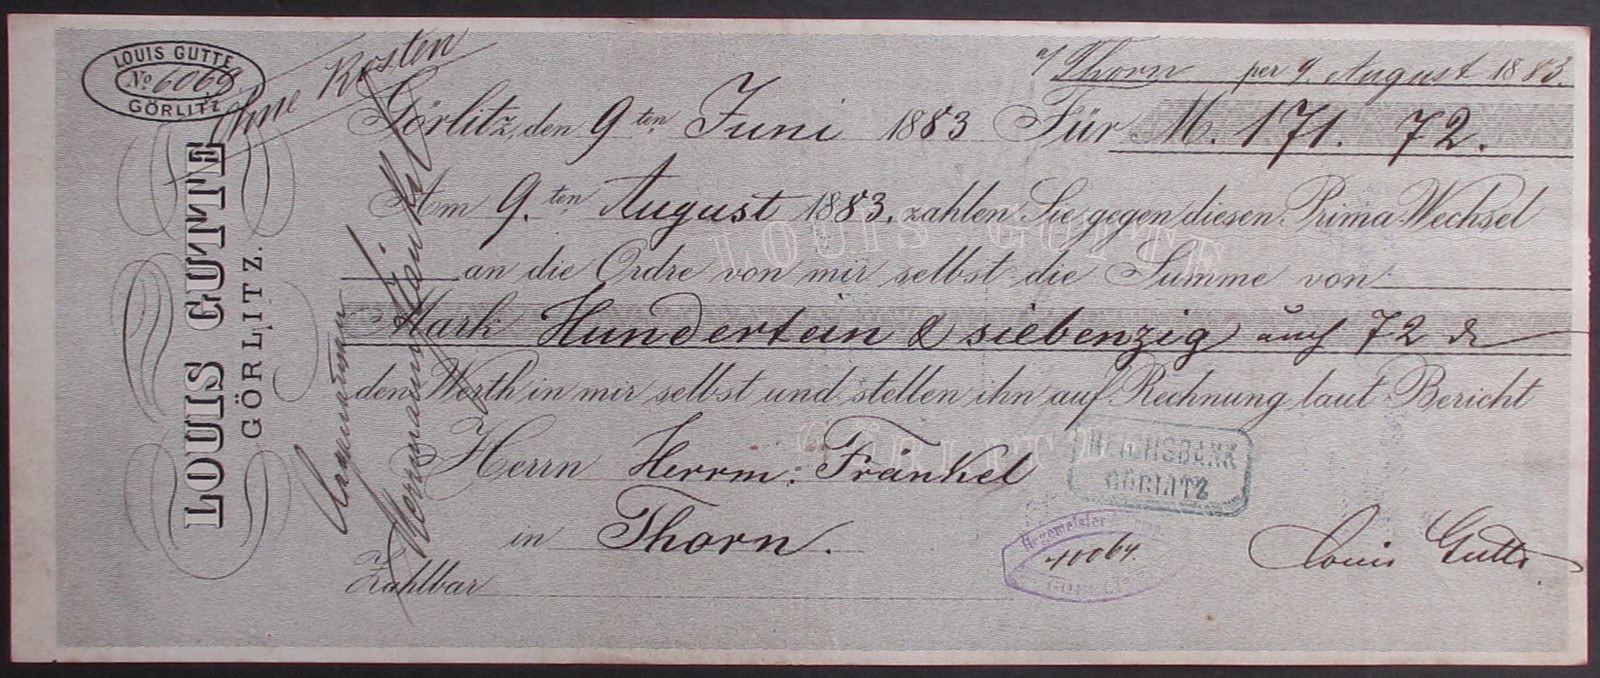 LOUIS GUTTE
No 6069
GÖRLITZ
Ohne Kosten
Thorn per 9. August 1883.
Görlitz, den 9ten Juni 1883 Für M. 171. 72.
Am 9.ten August 1883. zahlen Sie gegen diesen Prima-Wechsel
an die Ordre von mir selbst die Summe von
Mark Hundertein & siebenzig auch 72 δ
den Werth in mir selbst und stellen ihn auf Rechnung laut Bericht
Herrn Herrm: Fränkel
in Thorn.
Zahlbar
Louis Gutte.
LOUIS GUTTE
GÖRLITZ.
Angenommen
Hermann Fränkel
LOUIS GUTTE
GÖRLITZ
REICHSBANK
GÖRLITZ
Hegemeister
GÖRLITZ